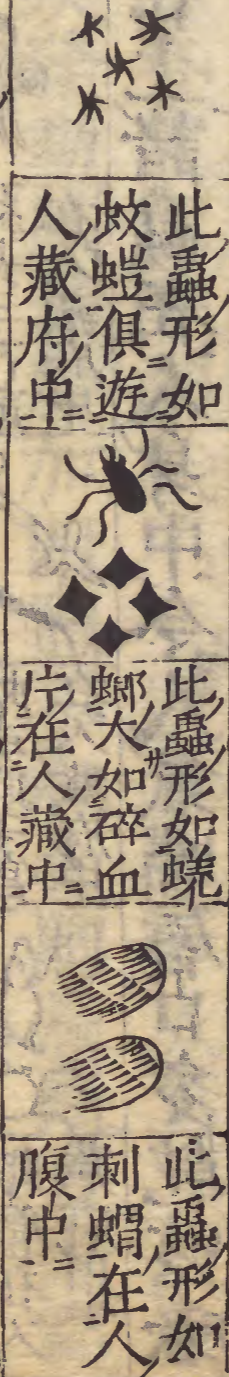 此蟲形如
蚊螘俱遊
人藏府中
此蟲形如蜣
螂大如碎血
片在人藏中
此蟲形如
刺蝟在人
腹中